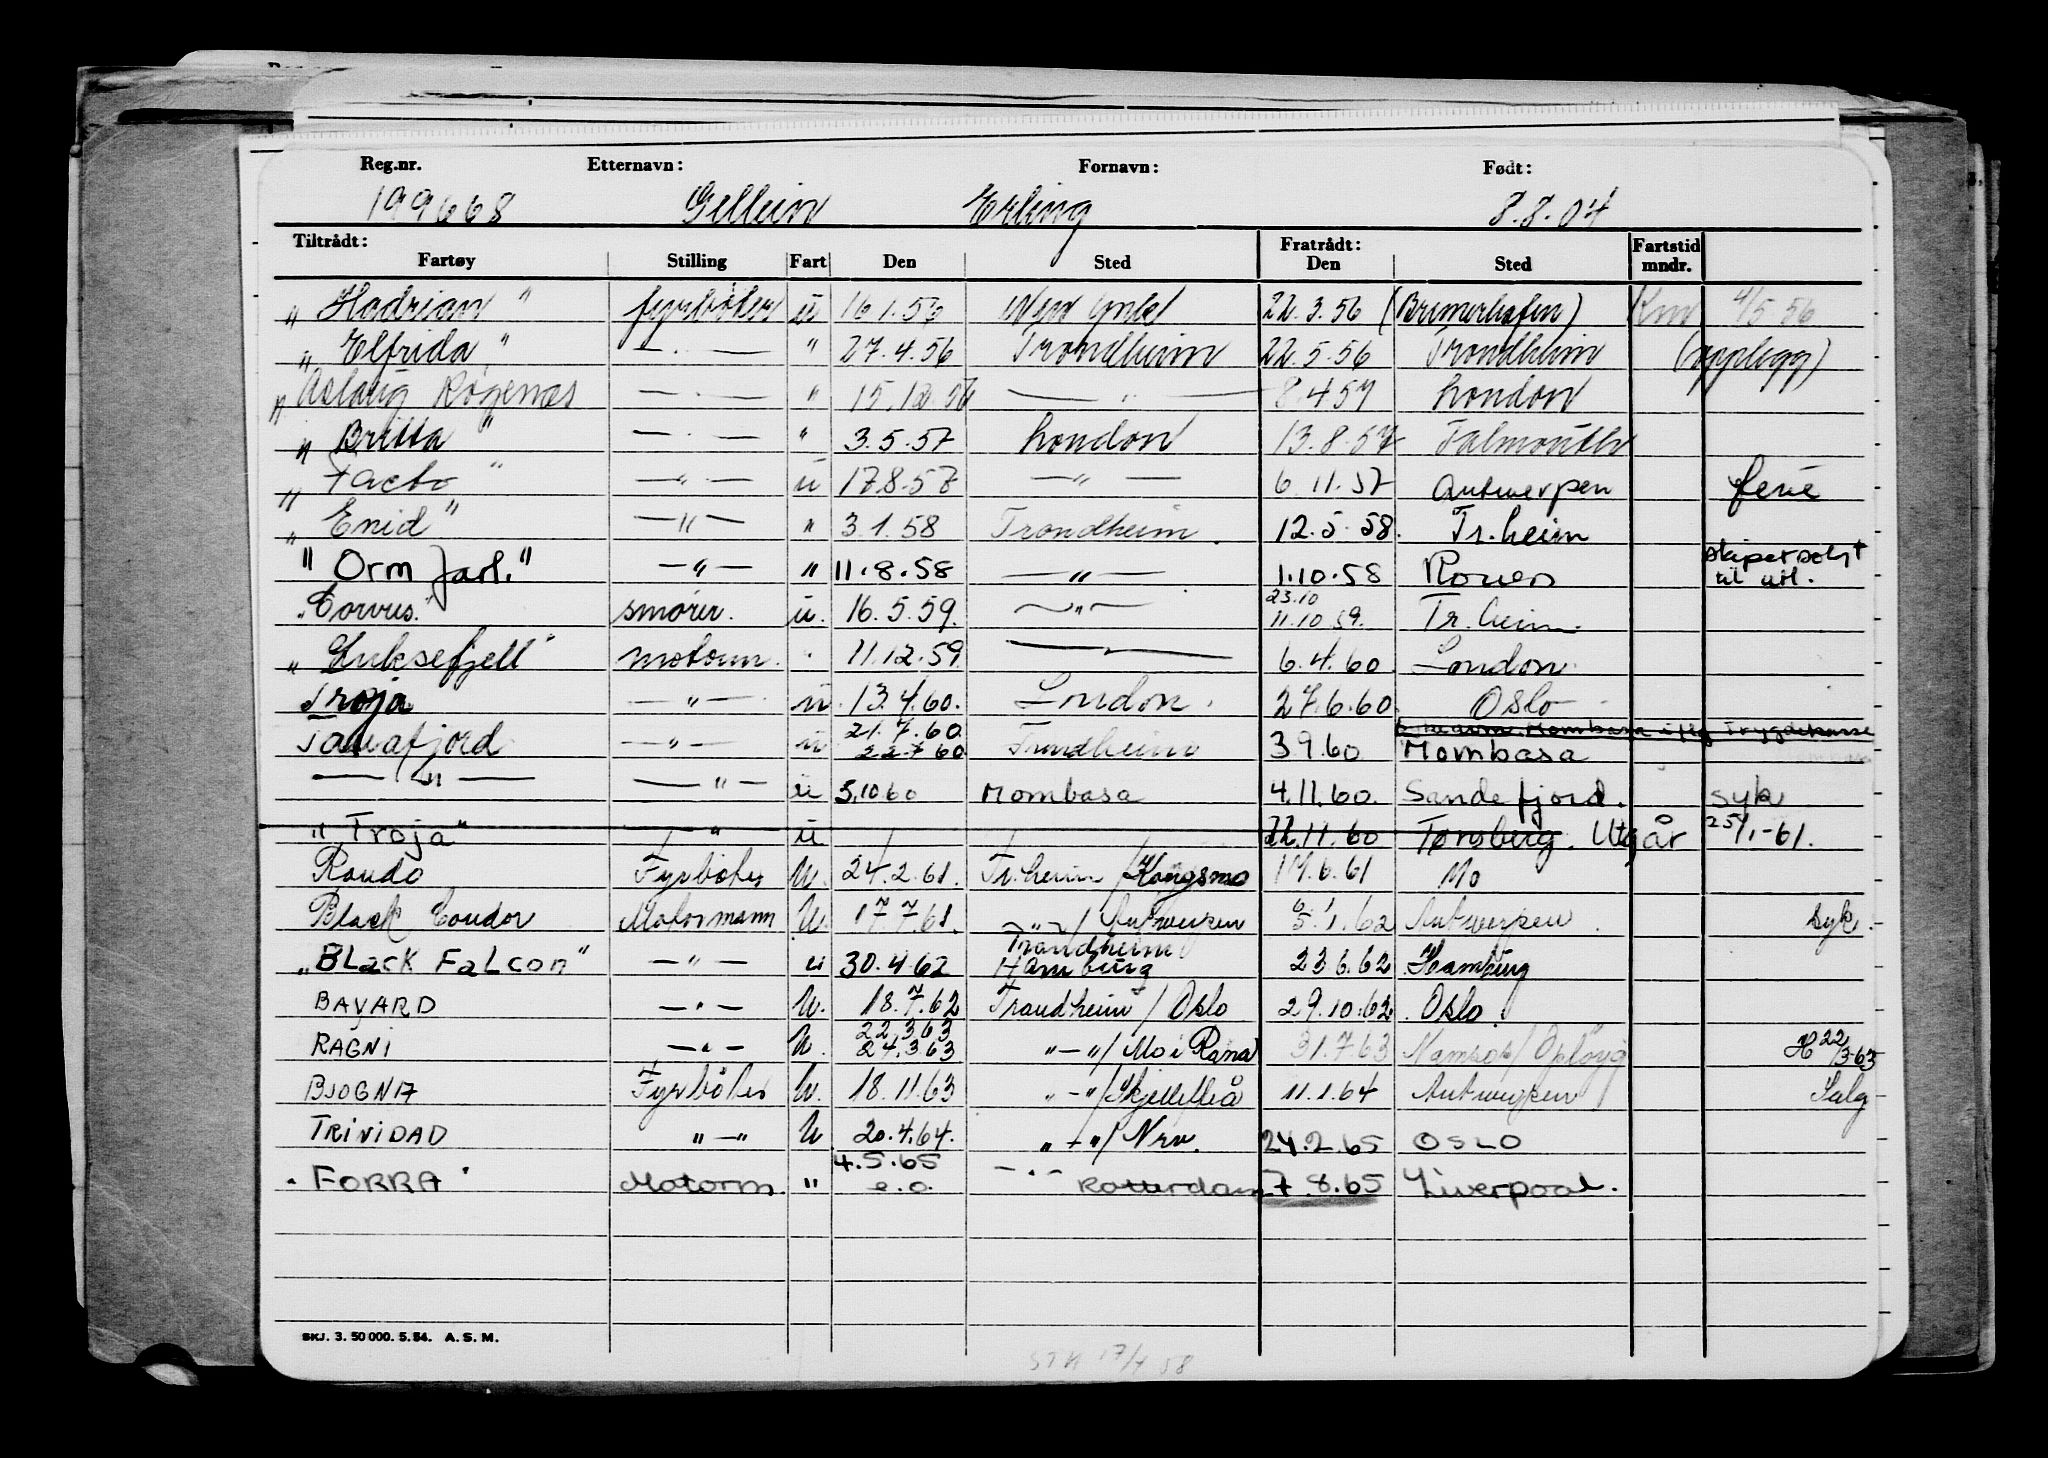 Reg.nr. Etternavn: Fornavn: Født:
199668 Gellein Erling 8.8.04
Tiltrådt: Fratrådt: Fartstid
Fartøy Stilling Fart Den Sted Den Sted mndr.
"Hadrian" fyrbøter u 16.1.56 New York 22.3.56 (Bremerhafen) 4/5 56
"Elfrida" — . — " 27.4.56 Trondheim 22.5.56 Trondheim (opplegg)
"Aslaug Rogenæs — . — " 15.12.56 — " — 8.4.57 London
"Britta" — . — " 3.5.57 London 13.8.57 Falmouth
"Facto" — " — u 17.8.57 — " — 6.11.57 Antwerpen ferie
"Enid" — " — " 3.1.58 Trondheim. 12.5.58. Tr.heim
"Orm Jarl." — " — " 11.8.58 — " — 1.10.58 Rouen skipet solgt til utl.
"Corvus." smører. u. 16.5.59. — " — 23.10 11.10.59. Tr.heim.
"Luksefjell" motorm. . 11.12.59. — " — 6.4.60. London.
Troja — " — u. 13.4.60. London. 27.6.60. Oslo
21.7.60.
Tanafjord — " — u 22.7.60 Trondheim 3.9.60 Mombasa
— " — — " — u 5.10.60 Mombasa 4.11.60. Sandefjord. syk
"Troja" — " — u 22.11.60 Tønsberg. Utgår 25/1-61.
Rondo Fyrbøter U. 24.2.61. Tr.heim / Kongsmo 17.6.61 Mo
Black Condor Motormann U. 17.7.61. — " — / Antwerpen 5.1.62 Antwerpen. syk.
"Black Falcon" — " — u 30.4.62 Trondheim Hamburg 23.6.62 Hamburg
BAYARD — " — U. 18.7.62 Trondheim / Oslo 29.10.62. Oslo.
22.3.63
RAGNI — " — U. 24.3.63 " — " / Mo i Rana 31.7.63 Namsos / Oplegg H 22/3-63
BJOGNA Fyrbøter U. 18.11.63 " — " / Skjelleteå 11.1.64 Antwerpen Salg
TRINIDAD " — " U 20.4.64. " — " / Nrv. 24.2.65 OSLO
4.5.65
"FORRA" Motorm. " e.o. — " — Rotterdam 7.8.65 Liverpool.
SKJ. 3. 50 000. 5. 54. A. S. M.
17/4 58